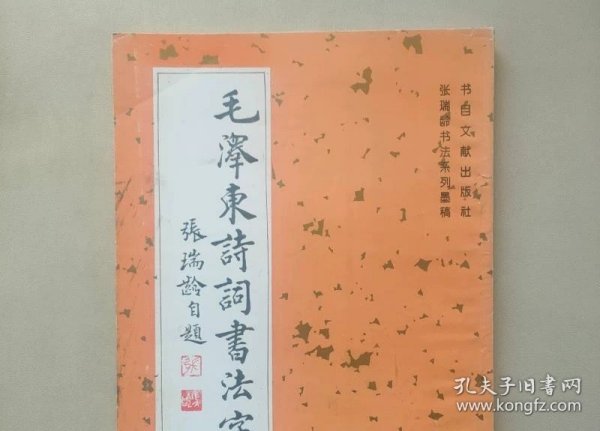 书目文献出版社
张瑞龄书法系列墨稿
毛澤東詩詞書法字
張瑞齡自題
孔夫子旧书网
www.kongfz.com